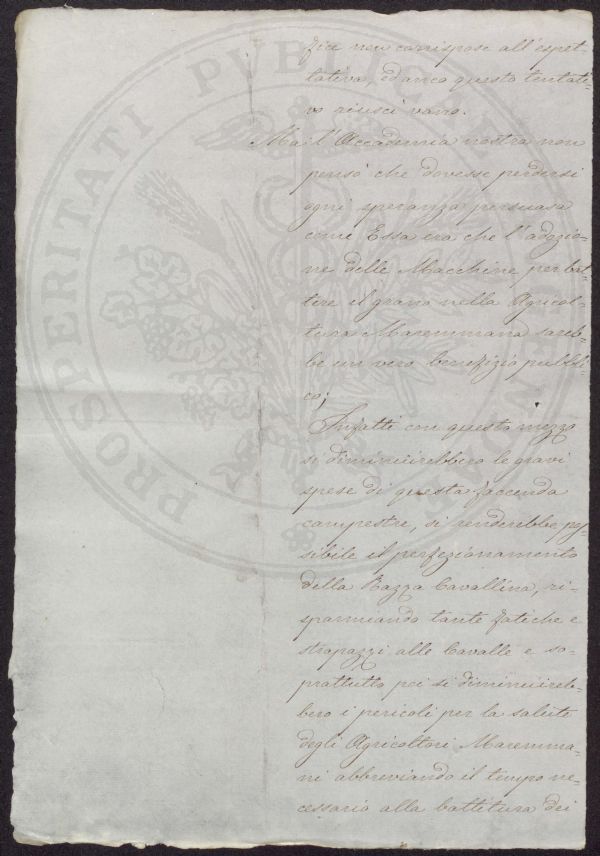 fice non corrispose all'espet-
tativa, ed anco questo tentati-
vo riuscì vano.
Ma l'Accademia nostra non
pensò che dovesse perdersi
ogni speranza persuasa
come Essa era che l'adozio-
ne delle Macchine per bat-
tere il grano nella Agricol-
tura Maremmana sareb-
be un vero benefizio pubbli-
co;
Infatti con questo mezzo
si diminuirebbero le gravi
spese di questa faccenda
campestre, si renderebbe pos-
sibile il perfezionamento
della Razza Cavallina, ri-
sparmiando tante fatiche e
strapazzi alle Cavalle e so-
prattutto poi si diminuireb-
bero i pericoli per la salute
degli Agricoltori Maremma-
ni abbreviando il tempo ne-
cessario alla battitura dei
PROSPERITATI PUBLICAE AUGENDAE